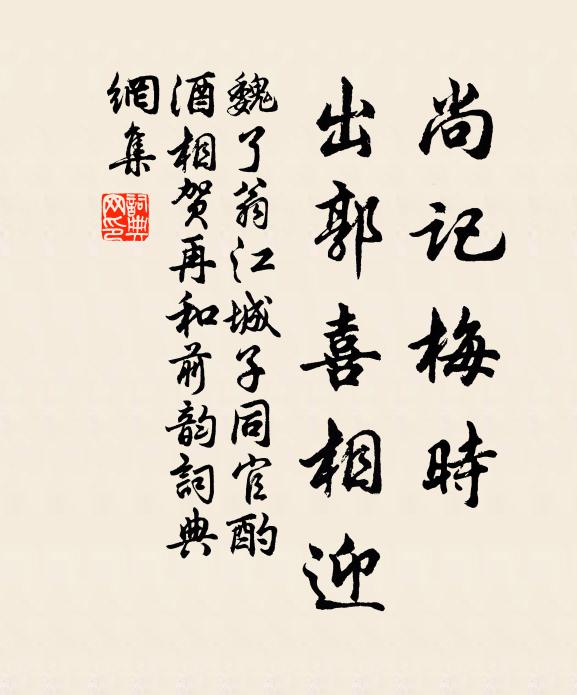 尚记梅時
出郭喜相迎
魏了翁江城子同官酌
酒相贺再和前韵詞典
網集
詞典网印